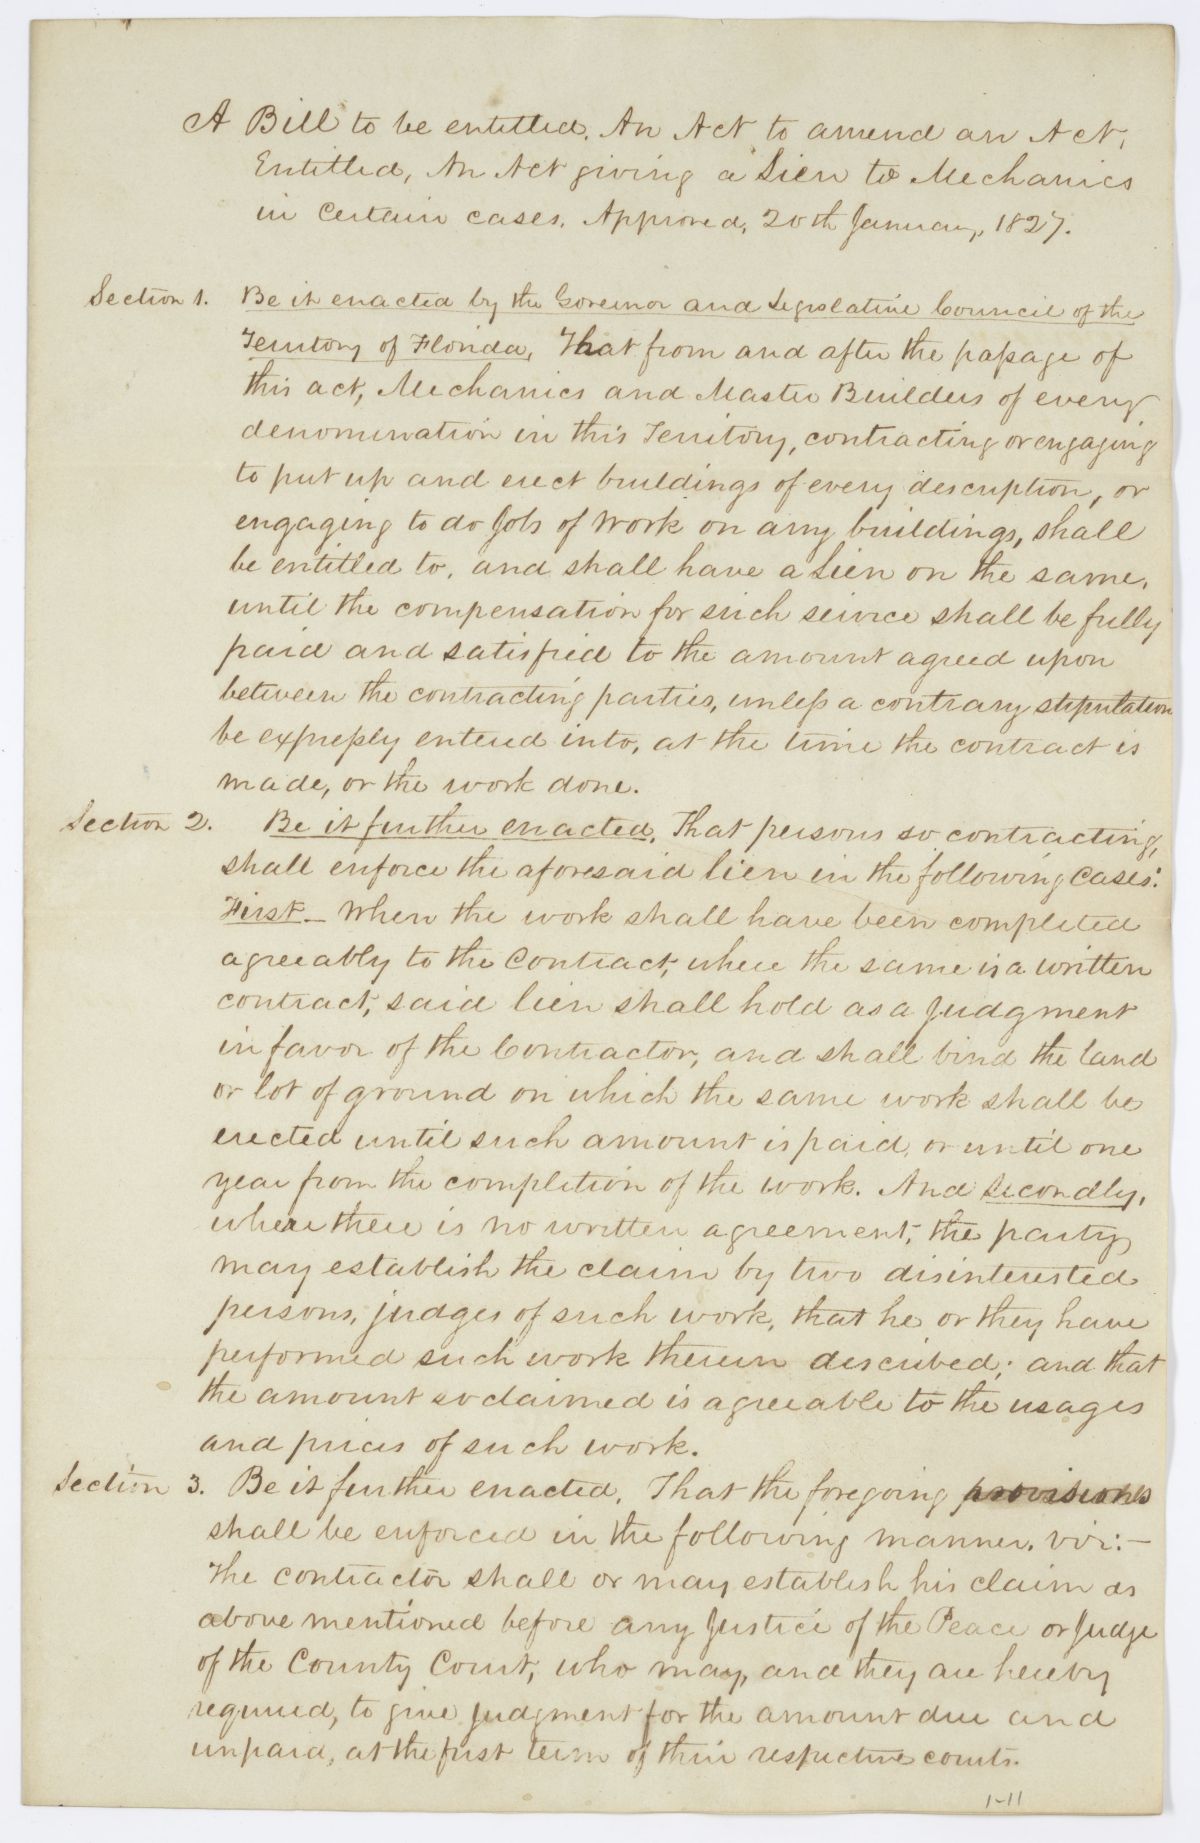 A Bill to be entitled, An Act to amend an Act,
Entitled, An Act giving a Lien to Mechanics
in Certain cases. Approved, 20th January, 1827.
Section 1. Be it enacted by the Governor and Legislative Council of the
Territory of Florida, That from and after the passage of
this act, Mechanics and Master Builders of every
denomination in this Territory, contracting or engaging
to put up and erect buildings of every description, or
engaging to do Jobs of Work on any buildings, shall
be entitled to, and shall have a Lien on the same,
until the compensation for such service shall be fully
paid and satisfied to the amount agreed upon
between the contracting parties, unless a contrary stipulation
be expressly entered into, at the time the contract is
made, or the work done.
Section 2. Be it further enacted, That persons so contracting,
shall enforce the aforesaid lien in the following Cases:
First. — When the work shall have been completed
agreeably to the Contract, where the same is a written
contract, said lien shall hold as a Judgment
in favor of the Contractor, and shall bind the land
or lot of ground on which the same work shall be
erected until such amount is paid, or until one
year from the completion of the work. And Secondly,
where there is no written agreement, the party
may establish the claim by two disinterested
persons, judges of such work, that he or they have
performed such work therein described; and that
the amount so claimed is agreeable to the usages
and prices of such work.
Section 3. Be it further enacted, That the foregoing provisions
shall be enforced in the following manner, viz: —
The Contractor shall or may establish his claim as
above mentioned before any Justice of the Peace or Judge
of the County Court, who may, and they are hereby
required, to give Judgment for the amount due and
unpaid, at the first term of their respective courts.
1-11